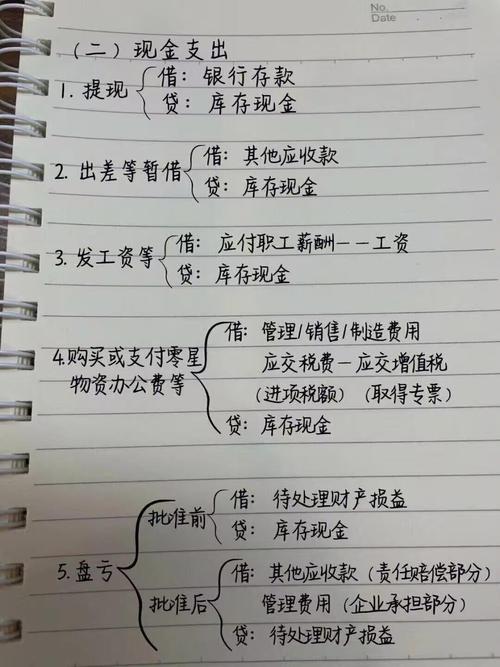 No.
Date
（二）现金支出
1. 提现 借：银行存款
贷：库存现金
2. 出差等暂借 借：其他应收款
贷：库存现金
3. 发工资等 借：应付职工薪酬——工资
贷：库存现金
4.购买或支付零星物资办公费等 借：管理/销售/制造费用
应交税费—应交增值税
（进项税额）（取得专票）
贷：库存现金
5.盘亏
批准前 借：待处理财产损益
贷：库存现金
批准后 借：其他应收款（责任赔偿部分）
管理费用（企业承担部分）
贷：待处理财产损益